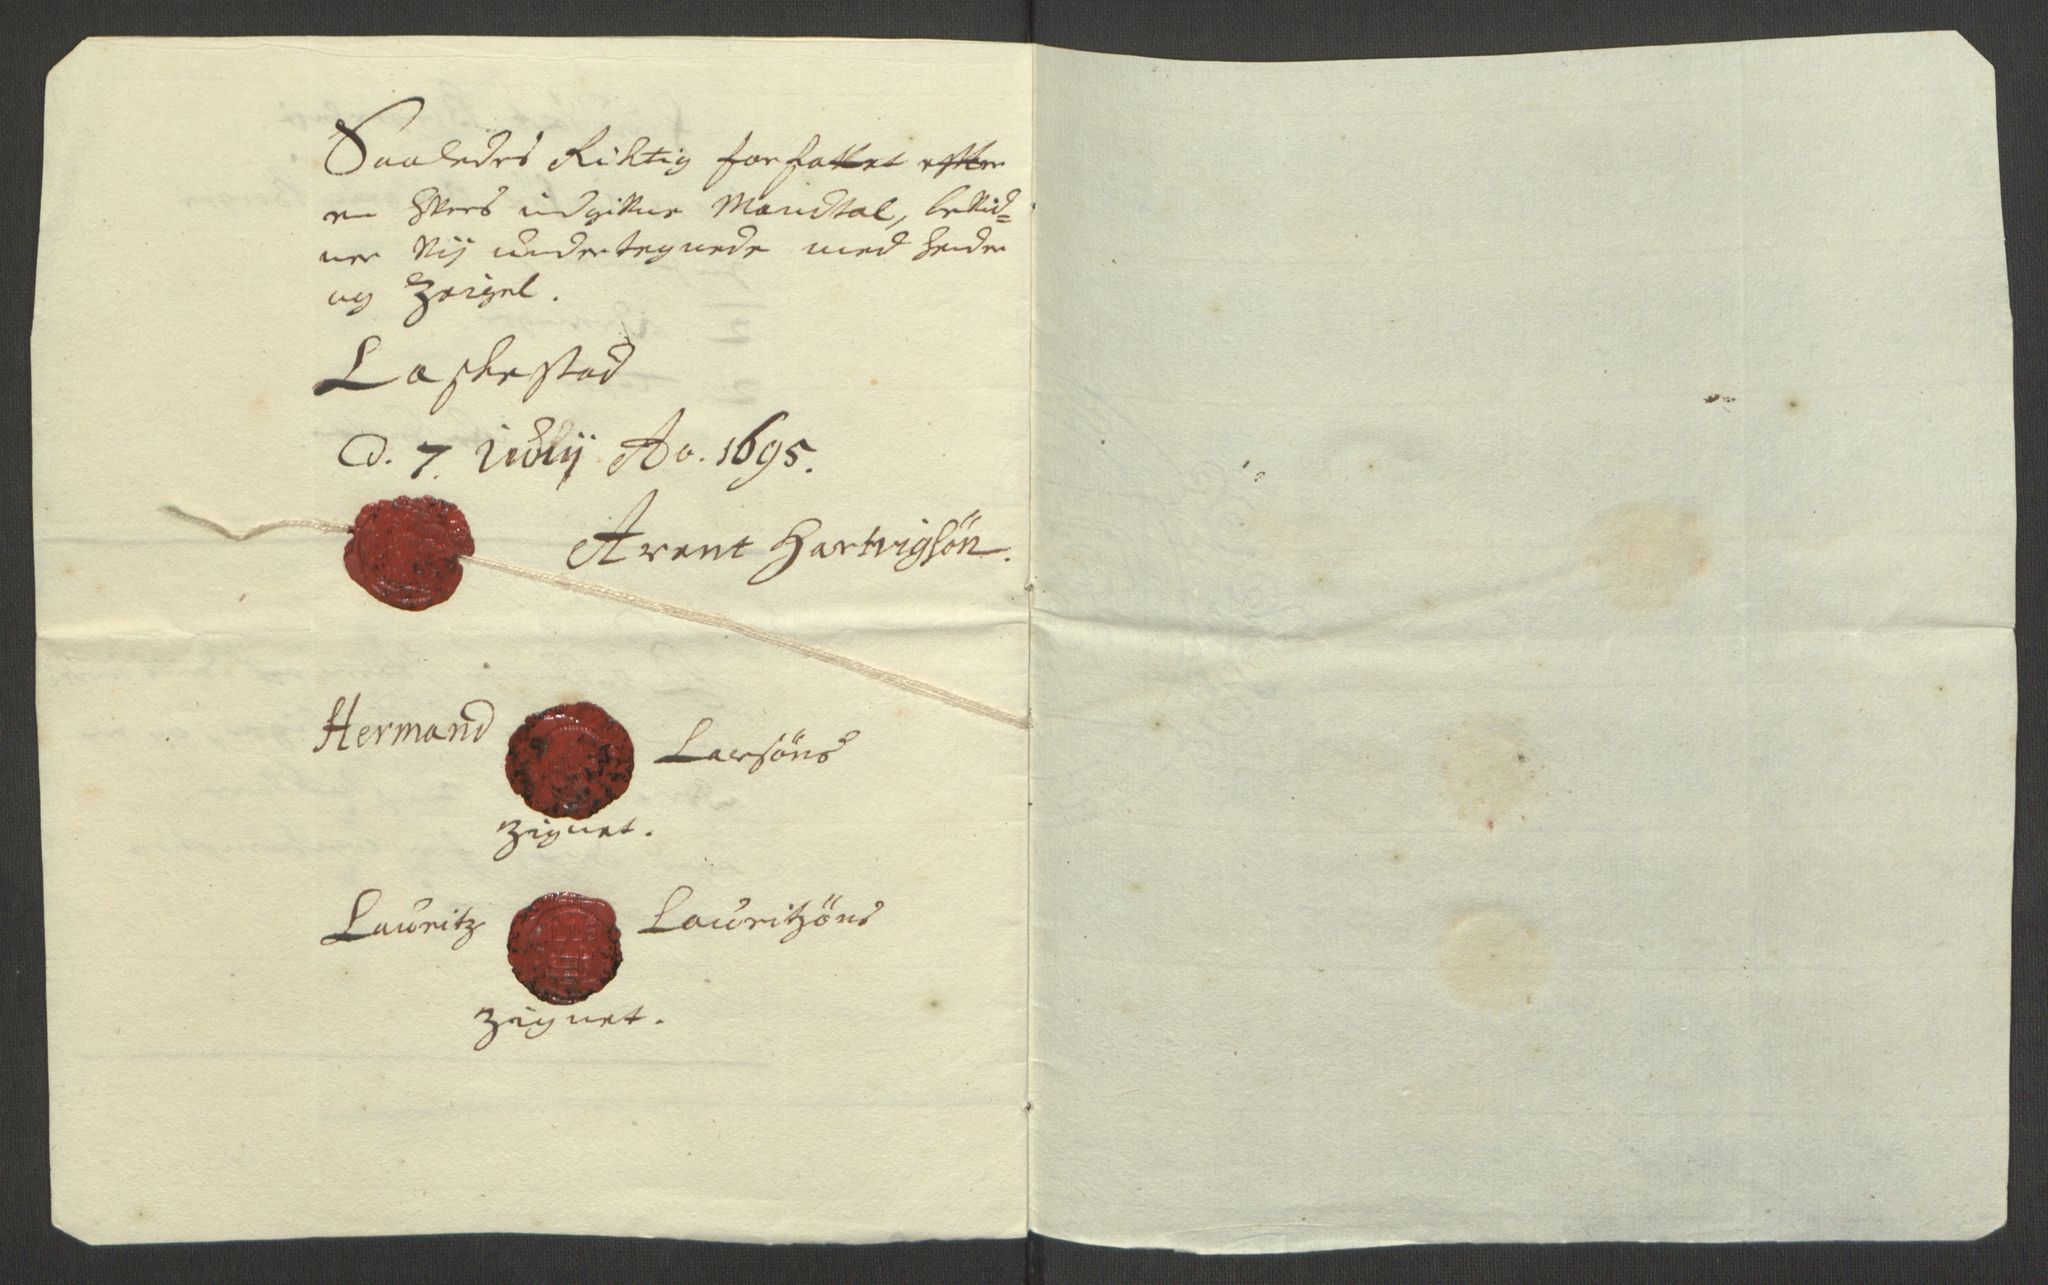 Saaledes Riktig forfattet efter
en hvers indgifne Mandtal, bekid=
ner Vij undertegnede med hender
og Zeigel.
Laskestad
d. 7. Julij Ao. 1695.
Arent Hartvigsön.
Hermand Larsöns
Zignet.
Lauritz Lauritzöns
Zignet.